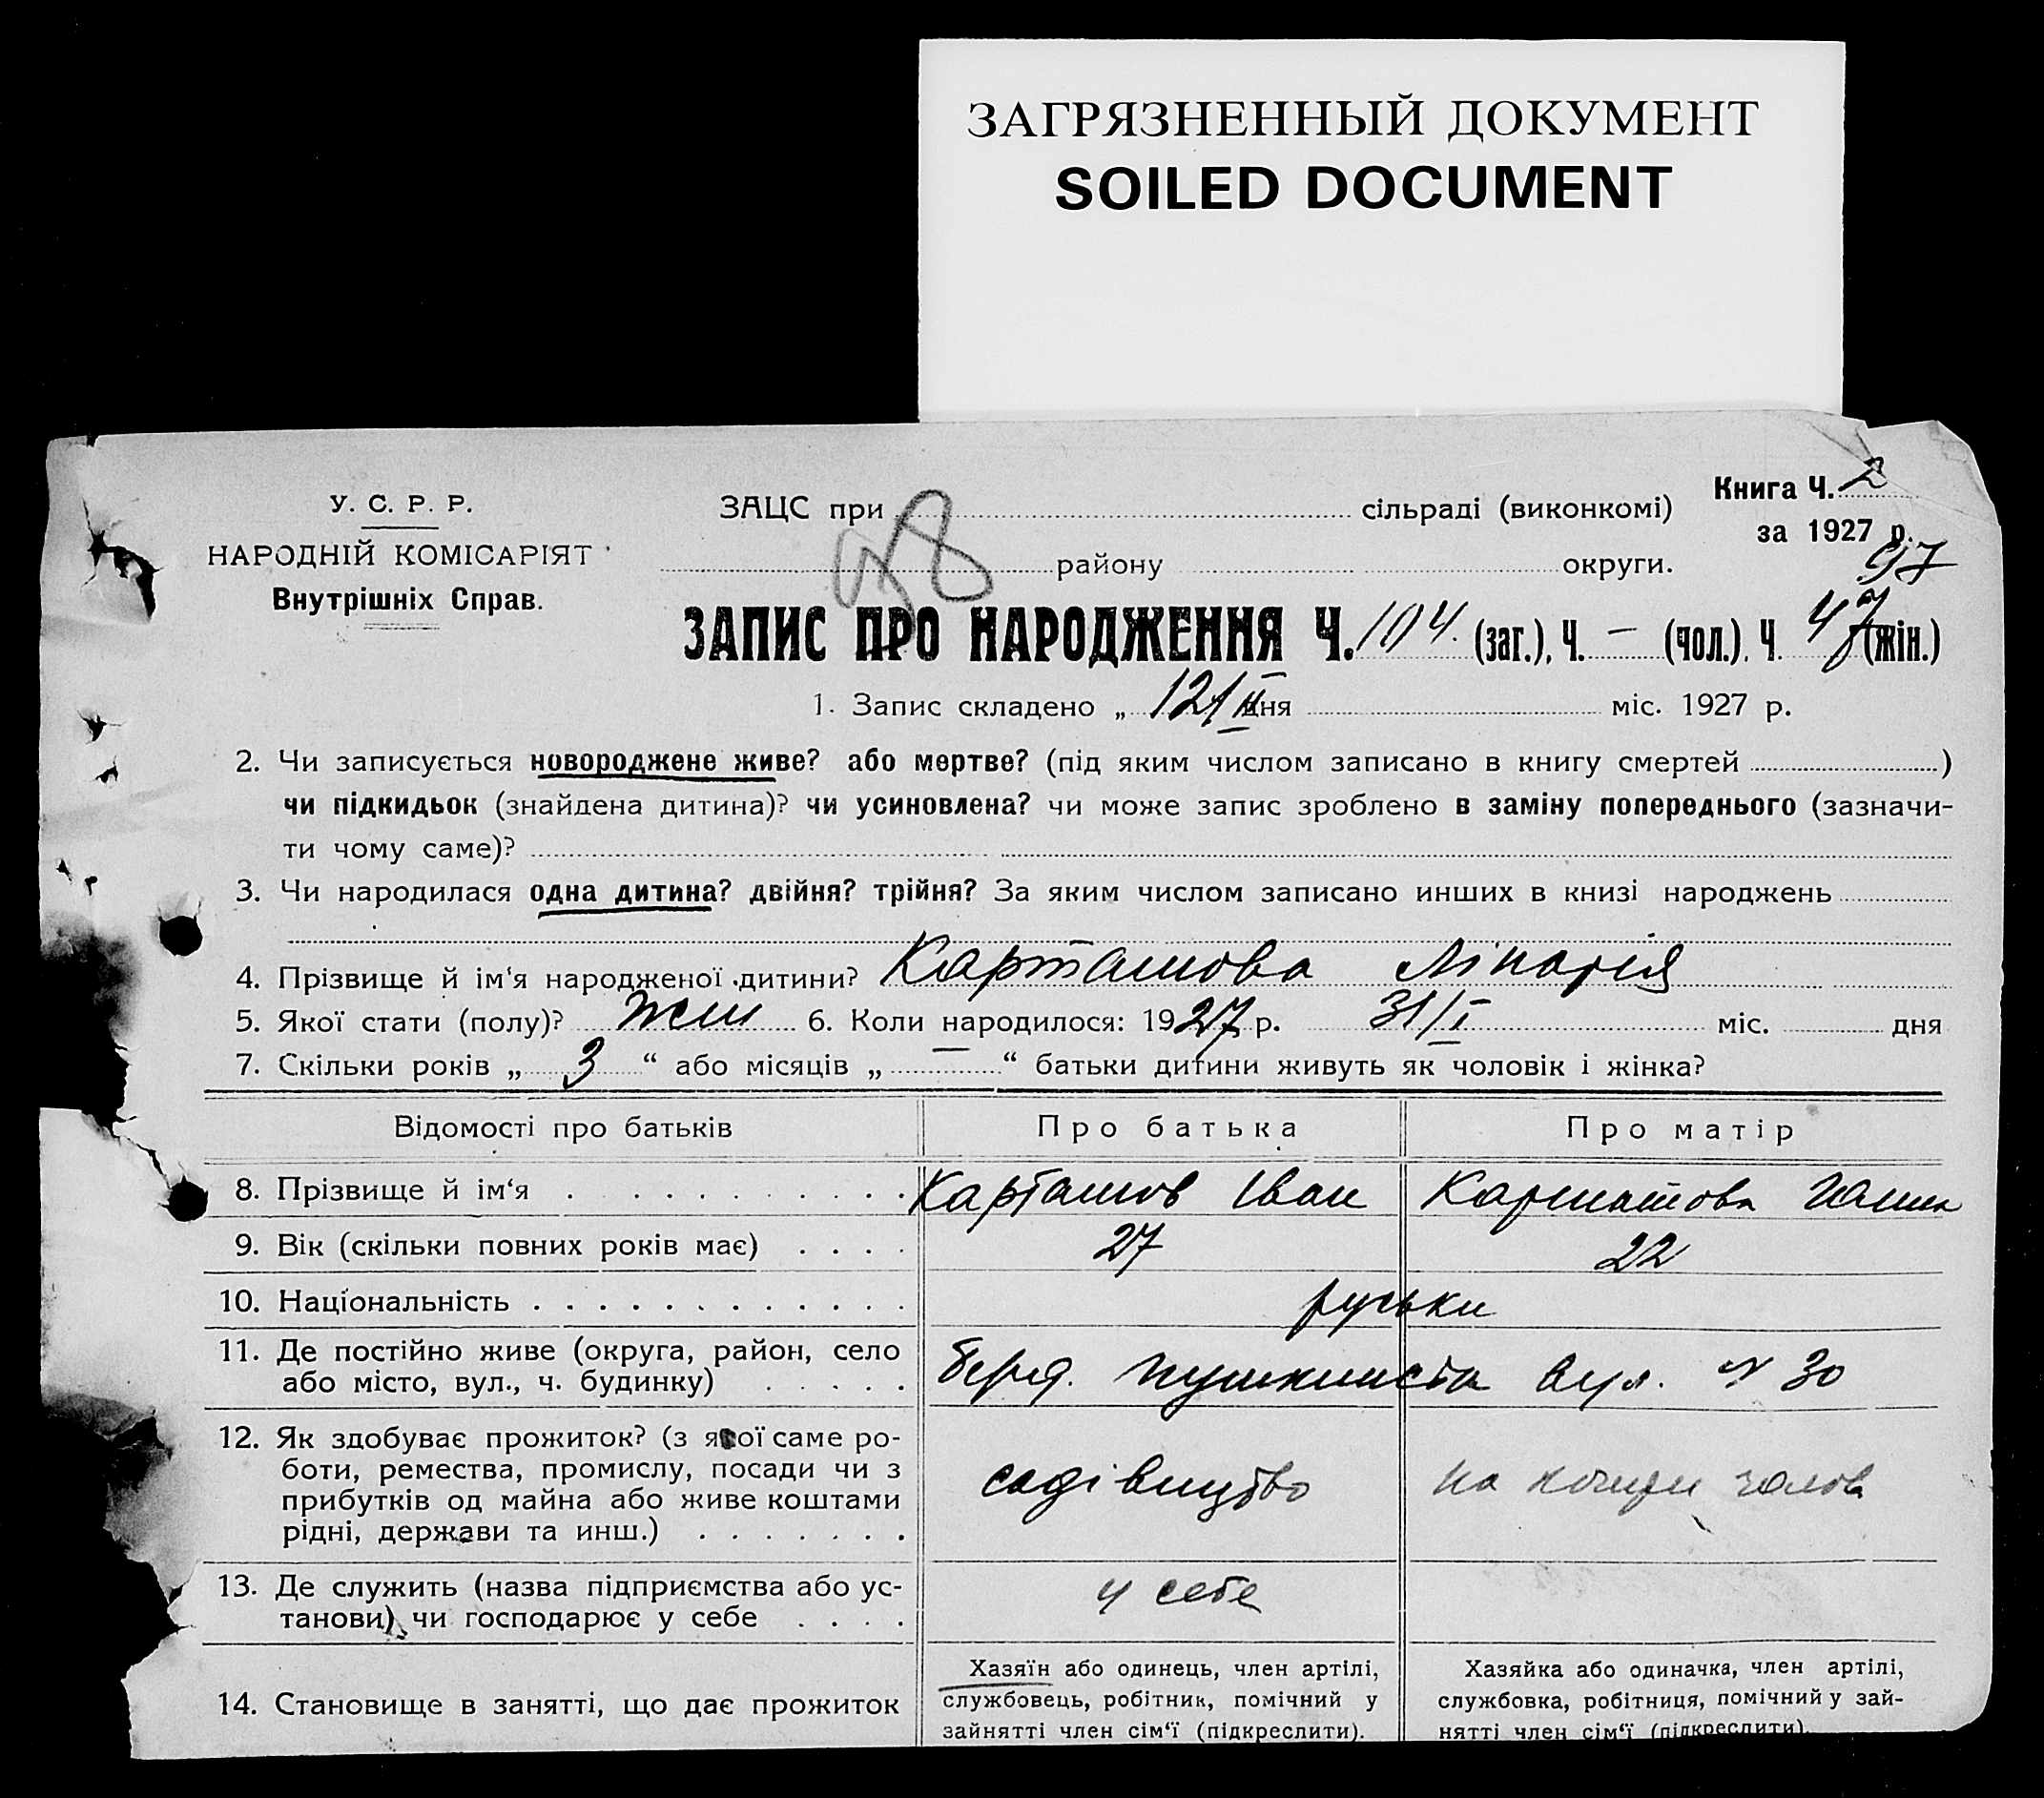 ЗАГРЯЗНЕННЫЙ ДОКУМЕНТ
SOILED DOCUMENT
У. С. Р. Р.
НАРОДНІЙ КОМІСАРІЯТ
Внутрішніх Справ.
ЗАЦС при сільраді (виконкомі)
району округи.
Книга Ч. 2
за 1927 р.
97
ЗАПИС ПРО НАРОДЖЕННЯ Ч. 104. (заг.), Ч. — (чол.), Ч. 47 (жін.)
1. Запис складено „ 12/II дня міс. 1927 р.
2. Чи записується новороджене живе? або мертве? (під яким числом записано в книгу смертей )
чи підкидьок (знайдена дитина)? чи усиновлена? чи може запис зроблено в заміну попереднього (зазначи-
ти чому саме)?
3. Чи народилася одна дитина? двійня? трійня? За яким числом записано инших в книзі народжень
4. Прізвище й ім‘я народженої дитини? Карташова
5. Якої стати (полу)? жін 6. Коли народилося: 1927 р. 31/I міс. дня
7. Скільки років „ 3 “ або місяців „ — “ батьки дитини живуть як чоловік і жінка?
Відомості про батьків Про батька Про матір
8. Прізвище й ім‘я Карташов Іван Карташова
9. Вік (скільки повних років має) 27 22
10. Національність руськи
11. Де постійно живе (округа, район, село
або місто, вул., ч. будинку)
Берд. Пушкинста вул. № 30
12. Як здобуває прожиток? (з якої саме ро-
боти, ремества, промислу, посади чи з
прибутків од майна або живе коштами
рідні, держави та инш.)
садівництво на кошти чолов
13. Де служить (назва підприємства або ус-
танови) чи господарює у себе
у себе
14. Становище в занятті, що дає прожиток
Хазяїн або одинець, член артілі,
службовець, робітник, помічний у
зайнятті член сім‘ї (підкреслити).
Хазяйка або одиначка, член артілі,
службовка, робітниця, помічний у зай-
нятті член сім‘ї (підкреслити).